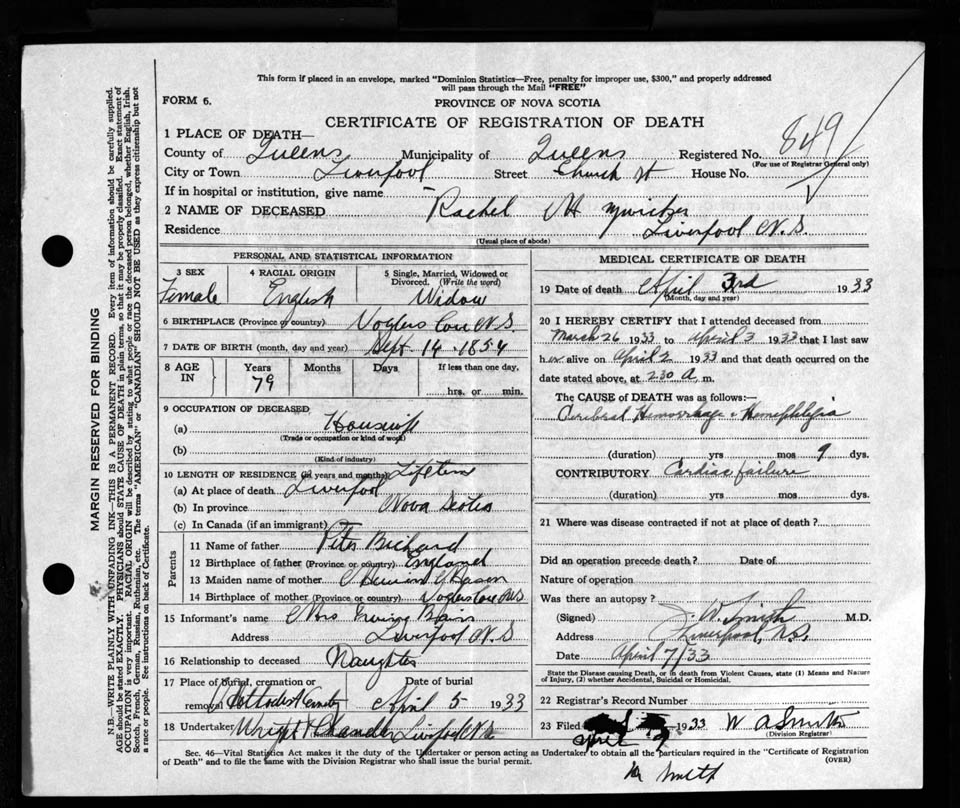 This form if placed in an envelope, marked "Dominion Statistics—Free, penalty for improper use, $300," and properly addressed
will pass through the Mail "FREE"
FORM 6.
PROVINCE OF NOVA SCOTIA
CERTIFICATE OF REGISTRATION OF DEATH
849
1 PLACE OF DEATH—
County of Queens Municipality of Queens Registered No.
(For use of Registrar General only)
City or Town Liverpool Street Church St House No.
If in hospital or institution, give name
2 NAME OF DECEASED Rachel H Zwicker
Residence Liverpool N.S.
(Usual place of abode)
PERSONAL AND STATISTICAL INFORMATION
3 SEX Female
4 RACIAL ORIGIN English
5 Single, Married, Widowed or Divorced. (Write the word) Widow
6 BIRTHPLACE (Province or country) Voglers Cove N.S.
7 DATE OF BIRTH (month, day and year) Sept. 14 - 1854
8 AGE IN Years 79 Months Days If less than one day, hrs. or min.
9 OCCUPATION OF DECEASED
(a) Housewife
(Trade or occupation or kind of work)
(b)
(Kind of industry)
10 LENGTH OF RESIDENCE (in years and months) Lifetime
(a) At place of death Liverpool
(b) In province Nova Scotia
(c) In Canada (if an immigrant)
Parents
11 Name of father Peter
12 Birthplace of father (Province or country) England
13 Maiden name of mother
14 Birthplace of mother (Province or country) Voglers Cove NS
15 Informant's name Mrs
Address Liverpool N.S
16 Relationship to deceased Daughter
17 Place of burial, cremation or removal Methodist Cemetery
Date of burial April 5 1933
18 Undertaker Wright Chandler Liverpool N.S
MEDICAL CERTIFICATE OF DEATH
19 Date of death April 3rd 1933
(Month, day and year)
20 I HEREBY CERTIFY that I attended deceased from
March 26 1933 to April 3 1933 that I last saw
her alive on April 2 1933 and that death occurred on the
date stated above, at 2.30 A. m.
The CAUSE of DEATH was as follows:—
Cerebral Hemorrhage & Hemiplegia
(duration) yrs mos 9 dys.
CONTRIBUTORY Cardiac failure
(duration) yrs mos dys.
21 Where was disease contracted if not at place of death?
Did an operation precede death? Date of
Nature of operation
Was there an autopsy?
(Signed) J. W. Smith M.D.
Address Liverpool, N.S.
Date April 7/33
State the Disease causing Death, or in death from Violent Causes, state (1) Means and Nature
of Injury, (2) whether Accidental, Suicidal or Homicidal.
22 Registrar's Record Number
23 Filed April 1933 W A Smith
(Division Registrar)
Sec. 46—Vital Statistics Act makes it the duty of the Undertaker or person acting as Undertaker to obtain all the particulars required in the "Certificate of Registration
of Death" and to file the same with the Division Registrar who shall issue the burial permit.
(OVER)
Smith
MARGIN RESERVED FOR BINDING
N.B.—WRITE PLAINLY WITH UNFADING INK—THIS IS A PERMANENT RECORD. Every item of information should be carefully supplied.
AGE should be stated EXACTLY. PHYSICIANS should STATE CAUSE OF DEATH in plain terms, so that it may be properly classified. Exact statement of
OCCUPATION is very important. RACIAL ORIGIN will be described by stating to what people or race the deceased person belonged, whether English, Irish,
Scotch, French, German, Russian, Ruthenian, etc. The terms "AMERICAN" or "CANADIAN" SHOULD NOT BE USED as they express citizenship but not
a race or people. See instructions on back of Certificate.